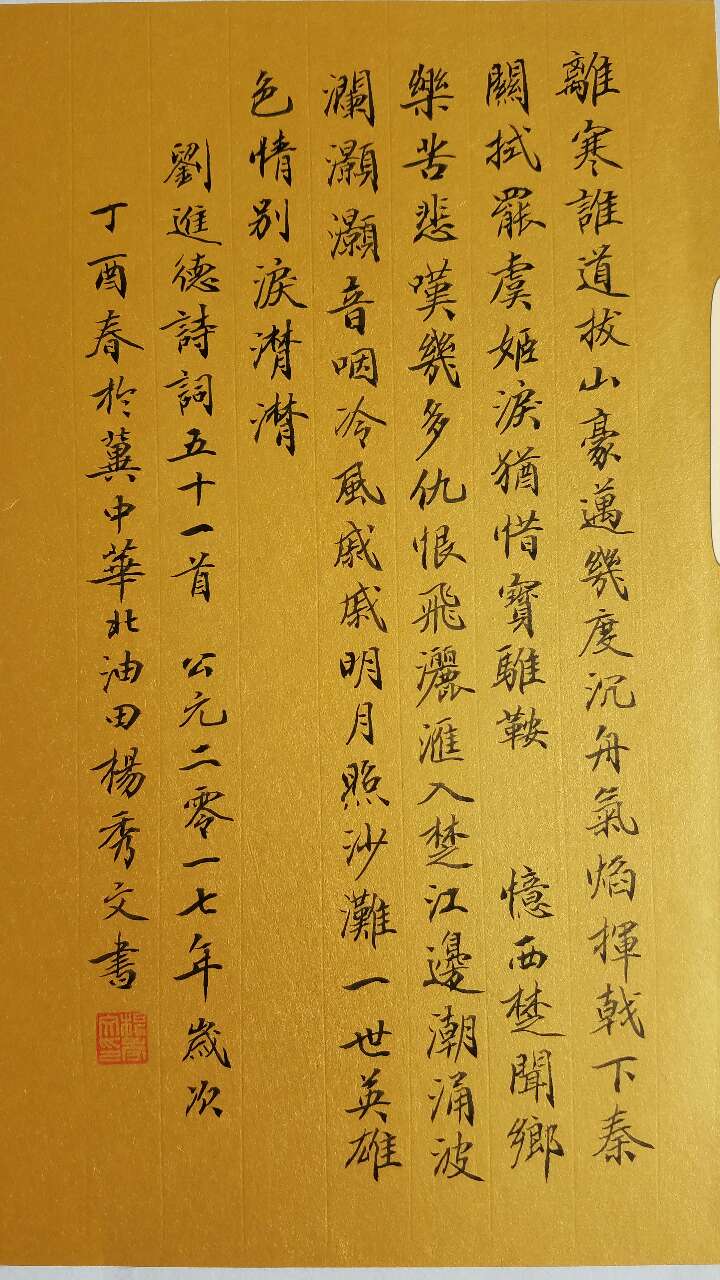 離寒誰道拔山豪邁幾度沉舟氣焰揮戟下秦
關拭罷虞姬淚猶惜寶騅鞍 憶西楚聞鄉
樂苦悲嘆幾多仇恨飛灑滙入楚江邊潮涌波
瀾灝灝音咽冷風戚戚明月照沙灘一世英雄
色情別淚潸潸
劉進德詩詞五十一首 公元二零一七年歲次
丁酉春於冀中華北油田楊秀文書